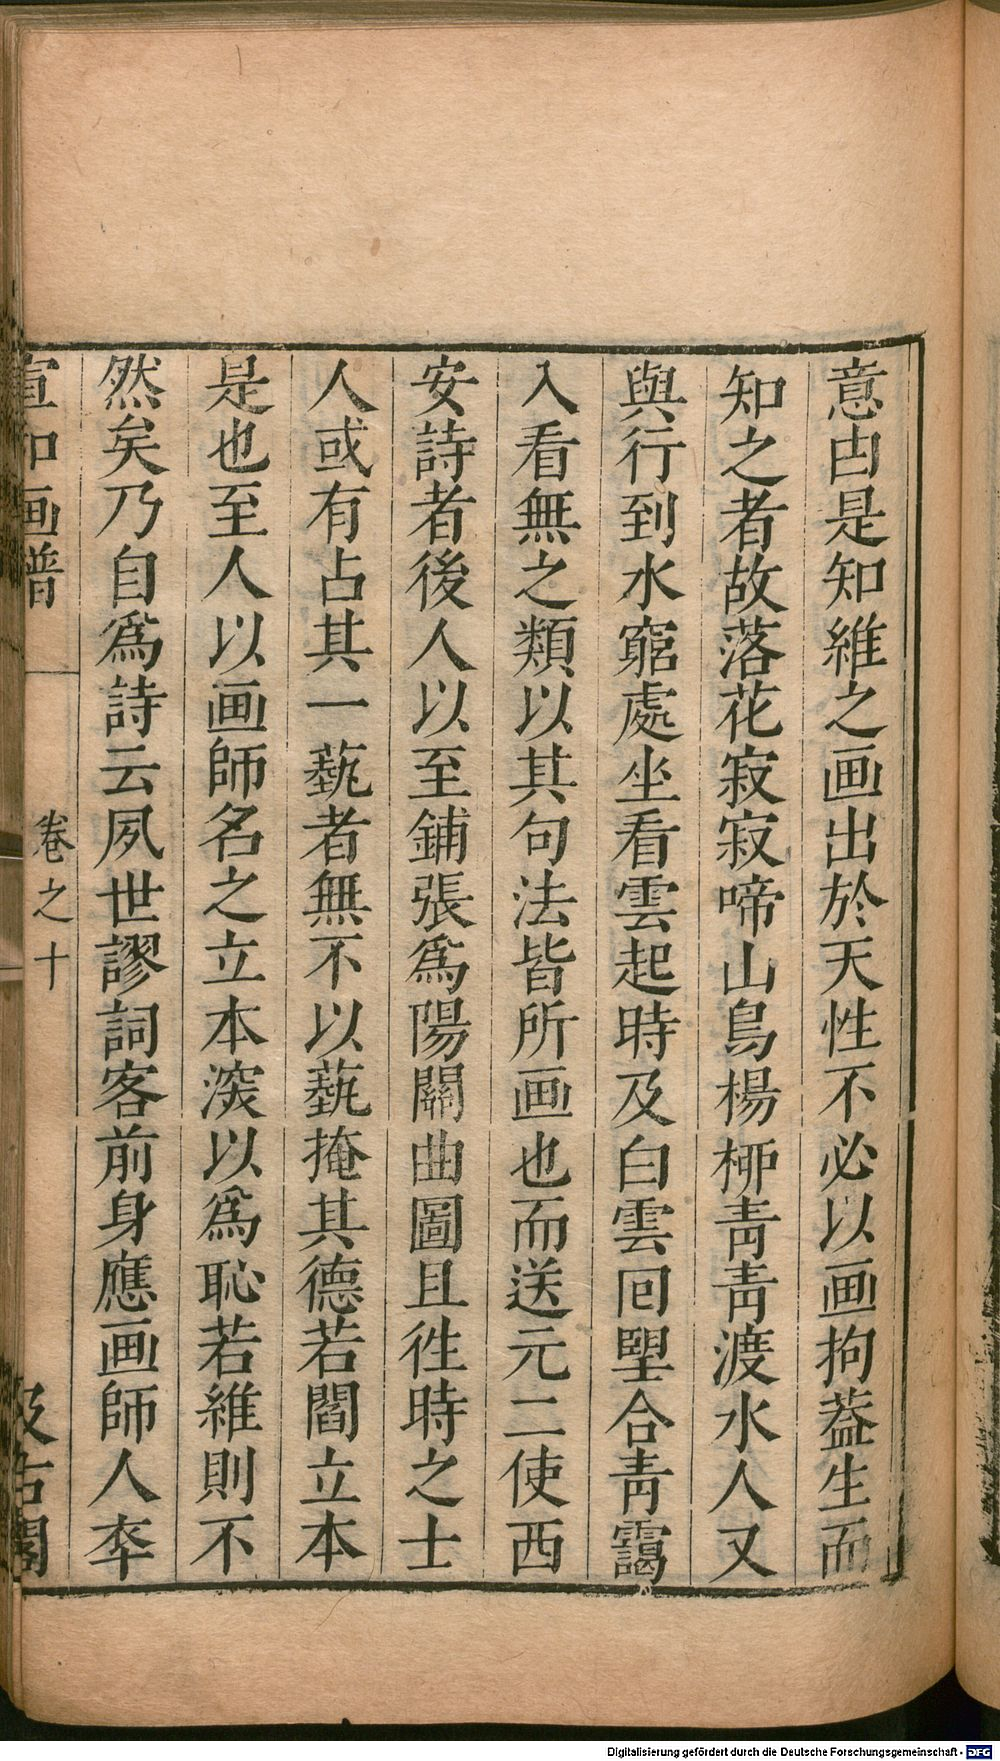 意由是知維之画出於天性不必以画拘葢生而
知之者故落花寂寂啼山鳥楊柳青青渡水人又
與行到水窮處坐看雲起時及白雲回望合青靄
入看無之類以其句法皆所画也而送元二使西
安詩者後人以至鋪張爲陽關曲圖且徃時之士
人或有占其一蓺者無不以蓺掩其德若閻立本
是也至人以画師名之立本深以爲恥若維則不
然矣乃自爲詩云夙世謬詞客前身應画師人卒
宣和画譜
卷之十
汲古閣
Digitalisierung gefördert durch die Deutsche Forschungsgemeinschaft - DFG